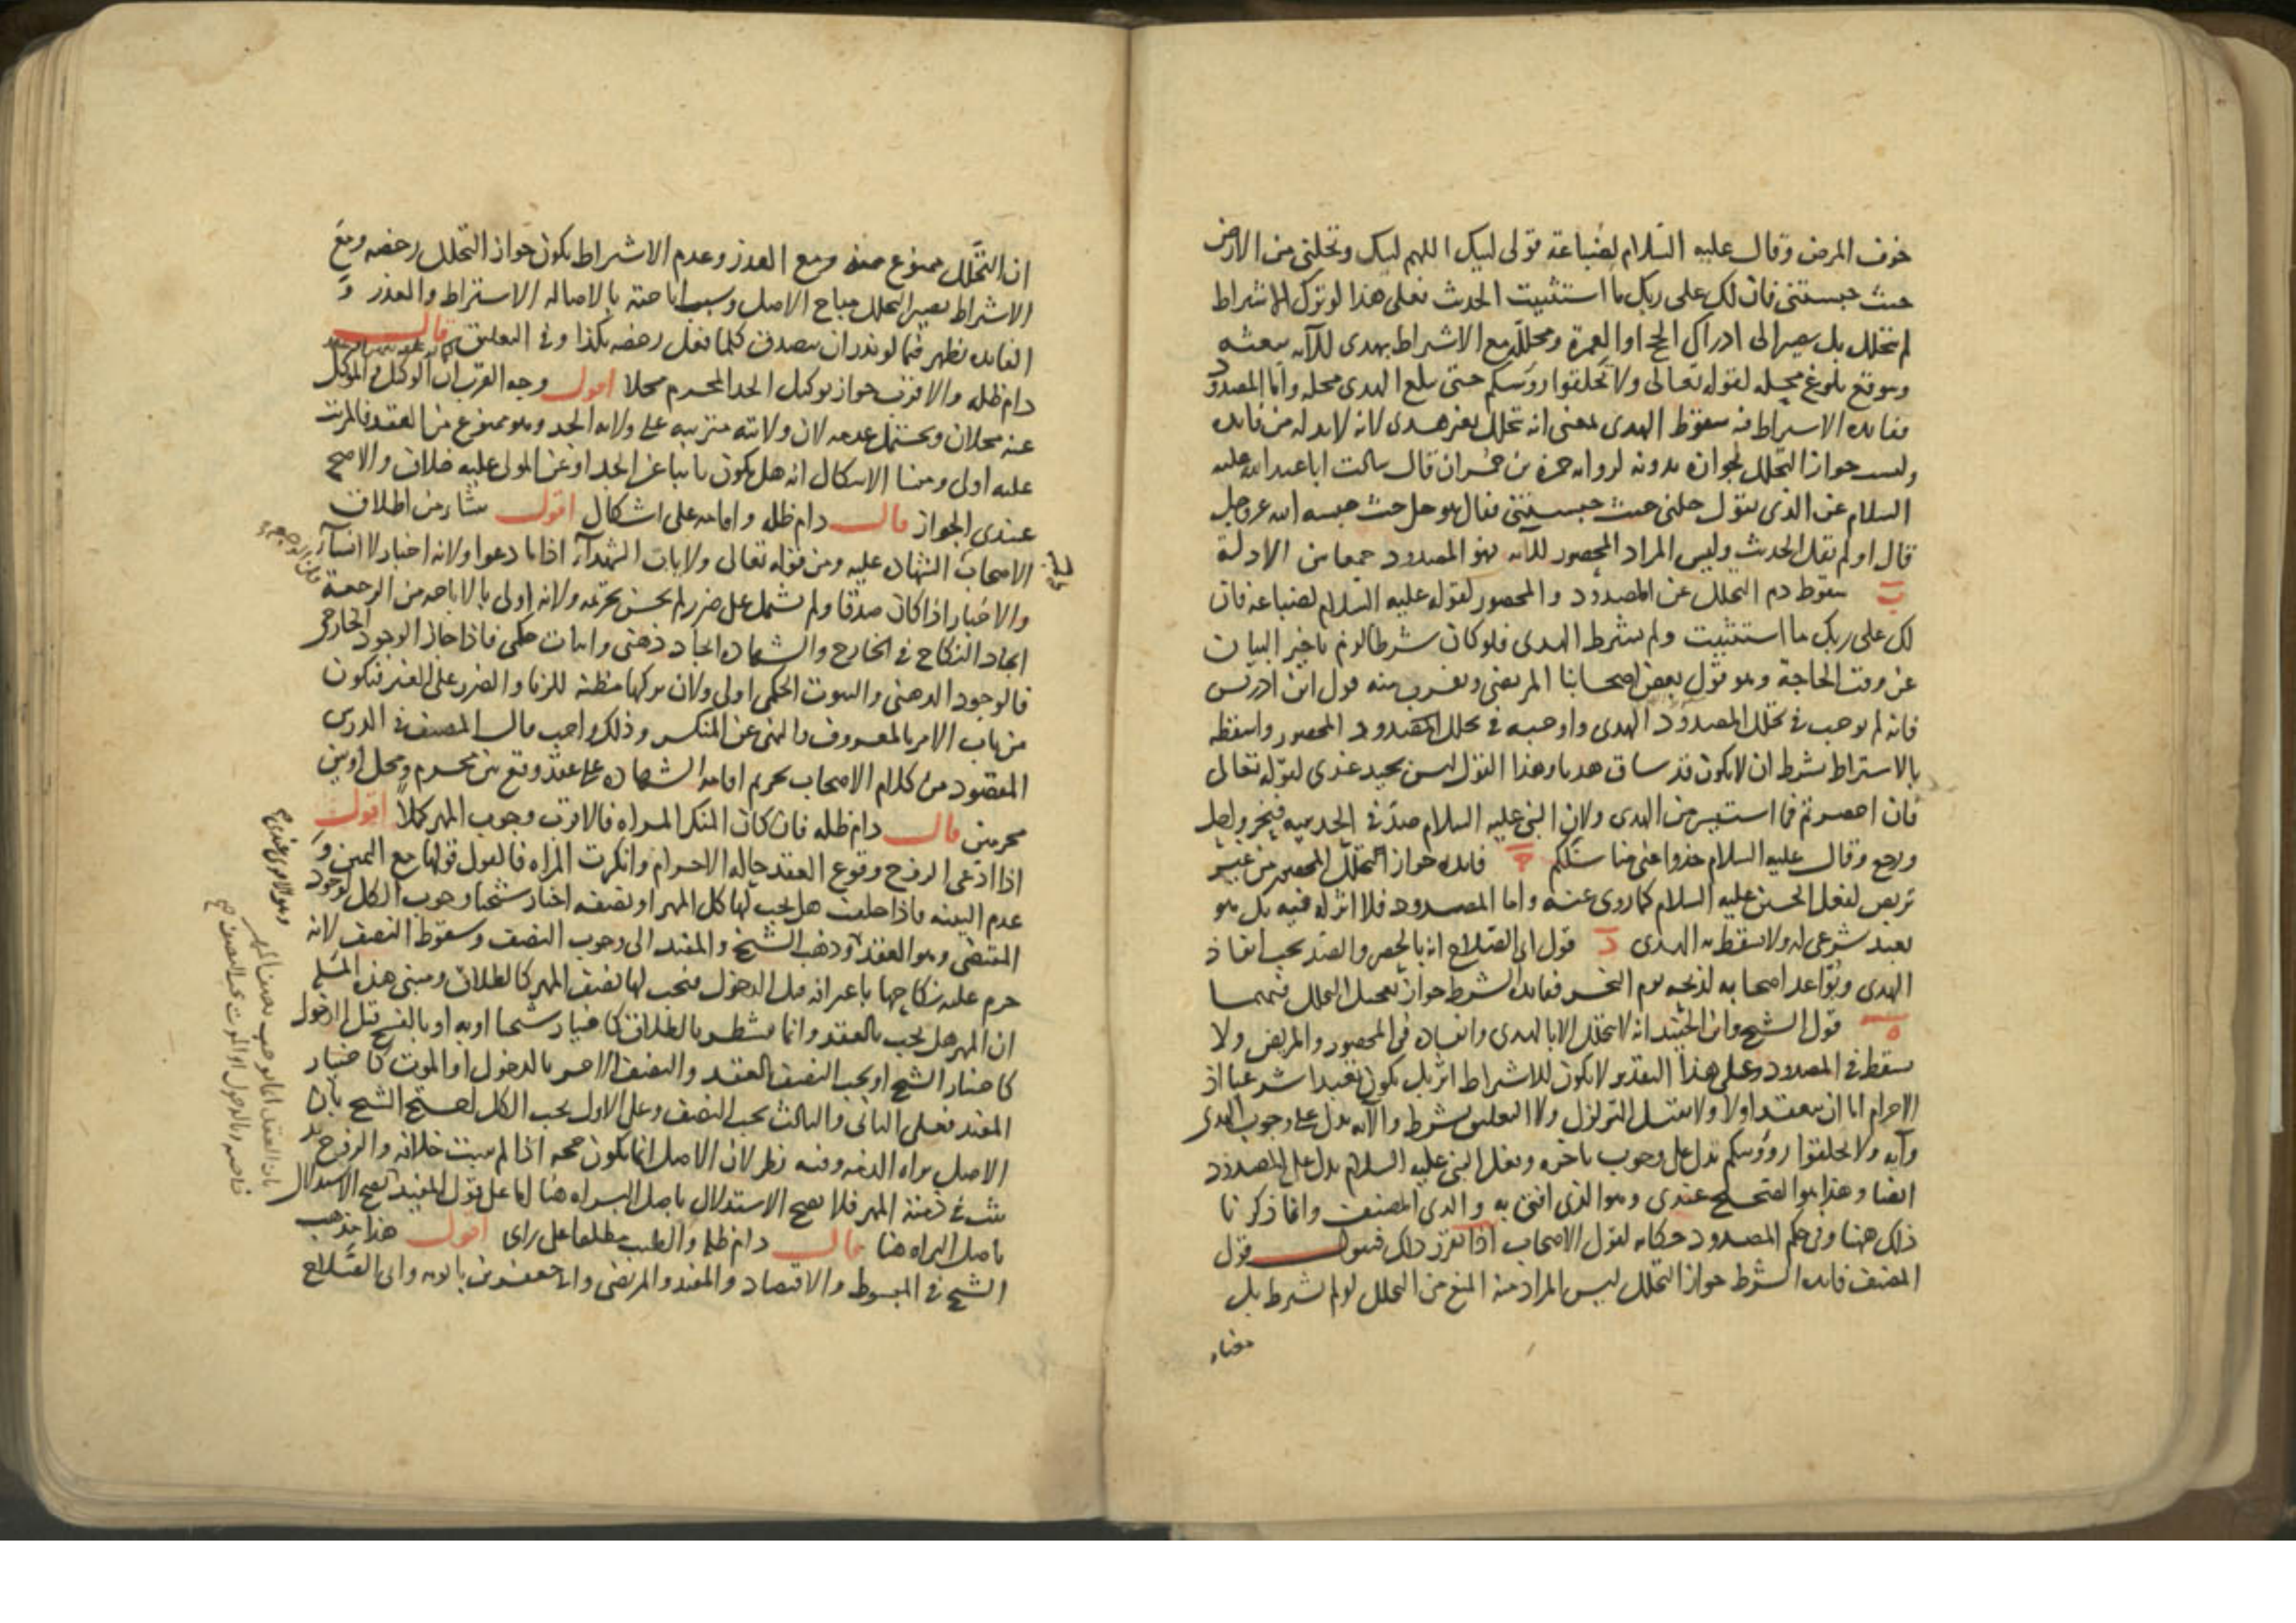 خوف المرض وقال عليه السلام لضباعة قولى لبيك اللهم لبيك وتحلنى من الارض
حيث حبستنى فان لك على ربك ما استثنيت الحديث فعلى هذا لو ترك الاشتراط
لم يتحلل بل يصير الى ادراك الحج او العمرة ومحلل مع الاشتراط بهدى للآية يبعثه
ويتوقع بلوغ محله لقوله تعالى ولا تحلقوا رؤسكم حتى يبلغ الهدى محله واما المصدود
ففايدة الاشتراط فيه سقوط الهدى بمعنى انه تحلل بغير هدى لانه لابد له من فايدة
وليست جواز التحلل لجوازه بدونه لرواية حمزة بن حمران قال سالت ابا عبد الله عليه
السلام عن الذى يقول حلنى حيث حبستنى فقال هو حل حيث حبسه الله عز وجل
قال او لم يقل الحديث وليس المراد المحصور للآية فهو المصدود جمعا بين الادلة
ب سقوط دم التحلل عن المصدود والمحصور لقوله عليه السلام لضباعة فان
لك على ربك ما استثنيت ولم يشرط الهدى فلو كان شرطا لزم تاخير البيان
عن وقت الحاجة وهو قول بعض اصحابنا المرتضى ويقرب منه قول ابن ادريس
فانه لم يوجب فى تحلل المصدود الهدى واوجبه فى تحلل المحصور واسقطه
بالاشتراط بشرط ان لا يكون قد ساق هديا وهذا القول ليس بجيد عندى لقوله تعالى
فان احصرتم فما استيسر من الهدى ولان النبى عليه السلام صد فى الحديبيه فنحر واحل
ورجع وقال عليه السلام خذوا عنى مناسككم ج فايدته جواز التحلل للمحصر من غير
تربص لفعل الحسين عليه السلام كما روى عنه واما المصدود فلا اثر له فيه بل هو
تعبد شرعى له ولا يسقط به الهدى د قول ابى الصلاح انه بالحصر والصد يجب انفاذ
الهدى وتواعد اصحابه لذبحه يوم النحر ففايدة الشرط جواز تعجيل التحلل فيهما
ه قول الشيخ وابن الجنيد انه لا يتحلل الا بالهدى وانفاذه فى المحصور والمريض ولا
يسقط فى المصدود وعلى هذا التقدير لا يكون للاشتراط اثر بل يكون تعبدا شرعيا اذ
الاحرام اما ان ينعقد اولا ولا يقبل التزلزل ولا التعليق بشرط والآية يدل على وجوب الهدى
وآية ولا تحلقوا رؤوسكم تدل على وجوب تاخره وفعل النبى عليه السلام يدل على المصدود
ايضا وهذا هو الصحيح عندى وهو الذى افتى به والدى المصنف وانما ذكرنا
ذلك ههنا وفى حكم المصدود حكاية لقول الاصحاب اذا تقرر ذلك فنقول قول
المصنف فايدة الشرط جواز التحلل ليس المراد منه المنع من التحلل لو لم يشرط بل
معناه
ان التحلل ممنوع منه ومع العذر وعدم الاشتراط يكون جواز التحلل رخصة ومع
الاشتراط يصير التحلل مباح الاصل وسبب اباحته بالاصالة الاشتراط والعذر و
الفايدة تظهر فيما لو نذر ان يتصدق كلما فعل رخصة بكذا وفى التعليق قال
دام ظله والاقرب جواز توكيل الجد المحرم محلا اقول وجه القرب ان الوكيل والموكل
عنه محلان ويحتمل عدمه لان ولايته مترتبة على ولاية الجد وهو ممنوع من العقد فالمرتب
عليه اولى ومنشا الاشكال انه هل يكون نايبا عن الجد او عن المولى عليه خلاف والاصح
عندى الجواز قال دام ظله واقامته على اشكال اقول ينشاء من اطلاق
الاصحاب الشهادة عليه ومن قوله تعالى ولا ياب الشهدآء اذا ما دعوا ولانه اخبار لا انشآء
والاخبار اذا كان صدقا ولم يشمل على ضرر لم يحسن تحريمه ولانه اولى بالاباحة من الرجعة
ايجاد النكاح فى الخارج والشهادة ايجاد ذهنى واثبات حكمى فاذا جاز الوجود الخارجى
فالوجود الذهنى والثبوت الحكمى اولى ولان تركها مظنة للزنا والضرر على الغير فتكون
من باب الامر بالمعروف والنهى عن المنكر وذلك واجب قال المصنف فى الدرس
المقصود من كلام الاصحاب تحريم اقامة الشهادة على عقد وقع بين محرم ومحل او بين
محرمين قال دام ظله فان كان المنكر المراه فالاقرب وجوب المهر كملا اقول
اذا ادعى الزوج وقوع العقد حاله الاحرام وانكرت المراه فالقول قولها مع اليمين و
عدم البينة فاذا حلفت هل يجب لها كل المهر او نصفه اختار شيخنا وجوب الكل لوجود
المقتضى وهو العقد وذهب الشيخ والمفيد الى وجوب النصف وسقوط النصف لانه
حرم عليه نكاحها باعترافه قبل الدخول فيجب لها نصف المهر كالطلاق ومبنى هذا المسئلة
ان المهر هل يجب بالعقد وانما يتشطر بالطلاق كاختيار شيخنا او به او بالفسخ قبل الدخول
كاختيار الشيخ او يجب النصف بالعقد والنصف الاخر بالدخول او الموت كاختيار
المفيد فعلى الثانى والثالث يجب النصف وعلى الاول يجب الكل احتج الشيخ بان
الاصل براة الذمة وفيه نظر لان الاصل انما يكون حجة اذا لم يثبت خلافه والزوج قد
ثبت فى ذمته المهر فلا يصح الاستدلال باصل البراه هنا اما على قول المفيد يصح الاستدلال
باصل البراه هنا قال دام ظله والطيب مطلقا على راى اقول هذا مذهب
الشيخ فى المبسوط والاقتصاد والمفيد والمرتضى وابى جعفر بن بابويه وابى الصلاح
وهو الاقوى عندى
بان العقد انما يوجب نصف المهر
خاصة وبالدخول او الموت يجب النصف